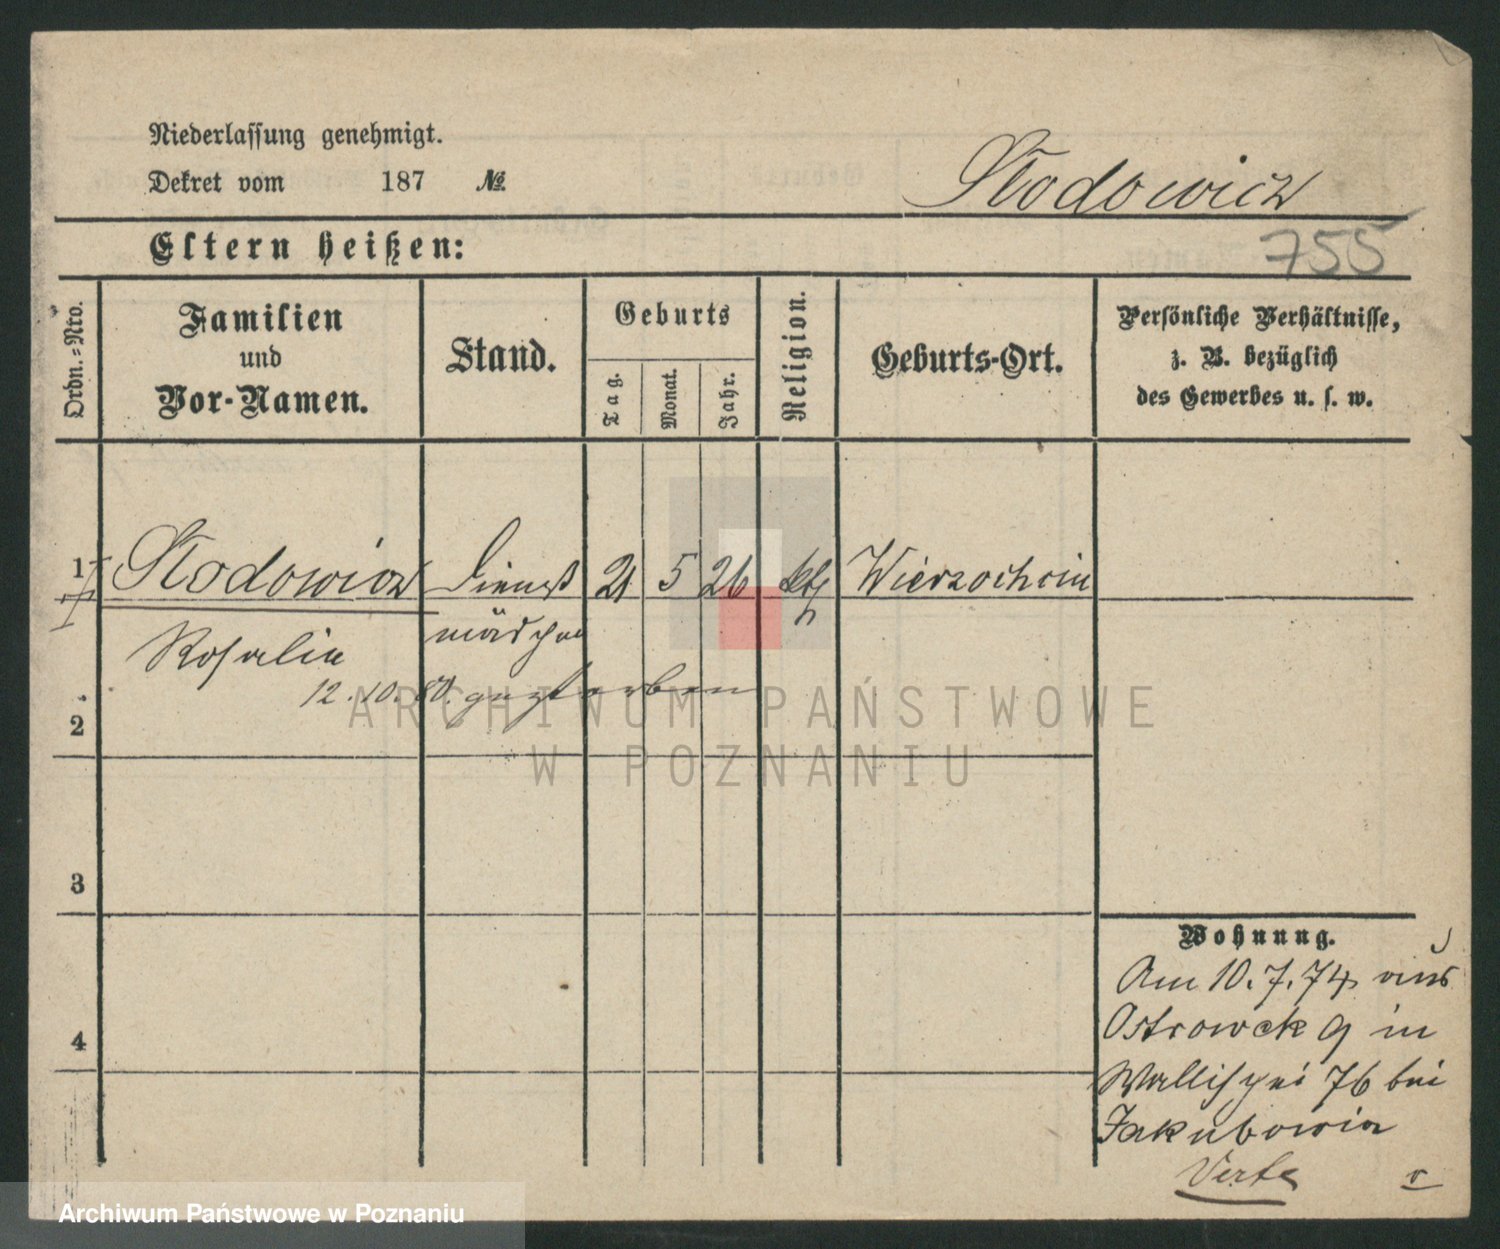 Niederlassung genehmigt.
Dekret vom 187 №
Słodowicz
Eltern heißen:
755
Ordn.-Nro.
Familien
und
Vor-Namen.
Stand.
Geburts
Tag.
Monat.
Jahr.
Religion.
Geburts-Ort.
Persönliche Verhältnisse,
z. B. bezüglich
des Gewerbes u. s. w.
1 Słodowicz Dienst 21 5 26 kth Wierzochcin
Rosalia mädchen
12.10.80. gestorben
2
3
4
Wohnung.
Am 10.7.74 aus
Ostrowek 9 in
Wallischei 76 bei
Jakubowicz
Verte
ARCHIWUM PAŃSTWOWE
W POZNANIU
Archiwum Państwowe w Poznaniu